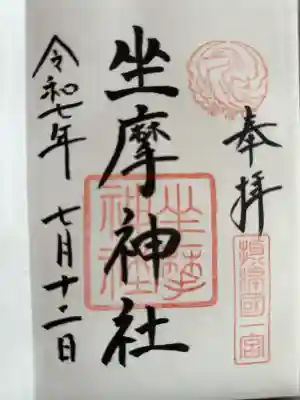 奉拝
摂津国一宮
坐摩神社
坐摩神社
令和七年 七月十二日